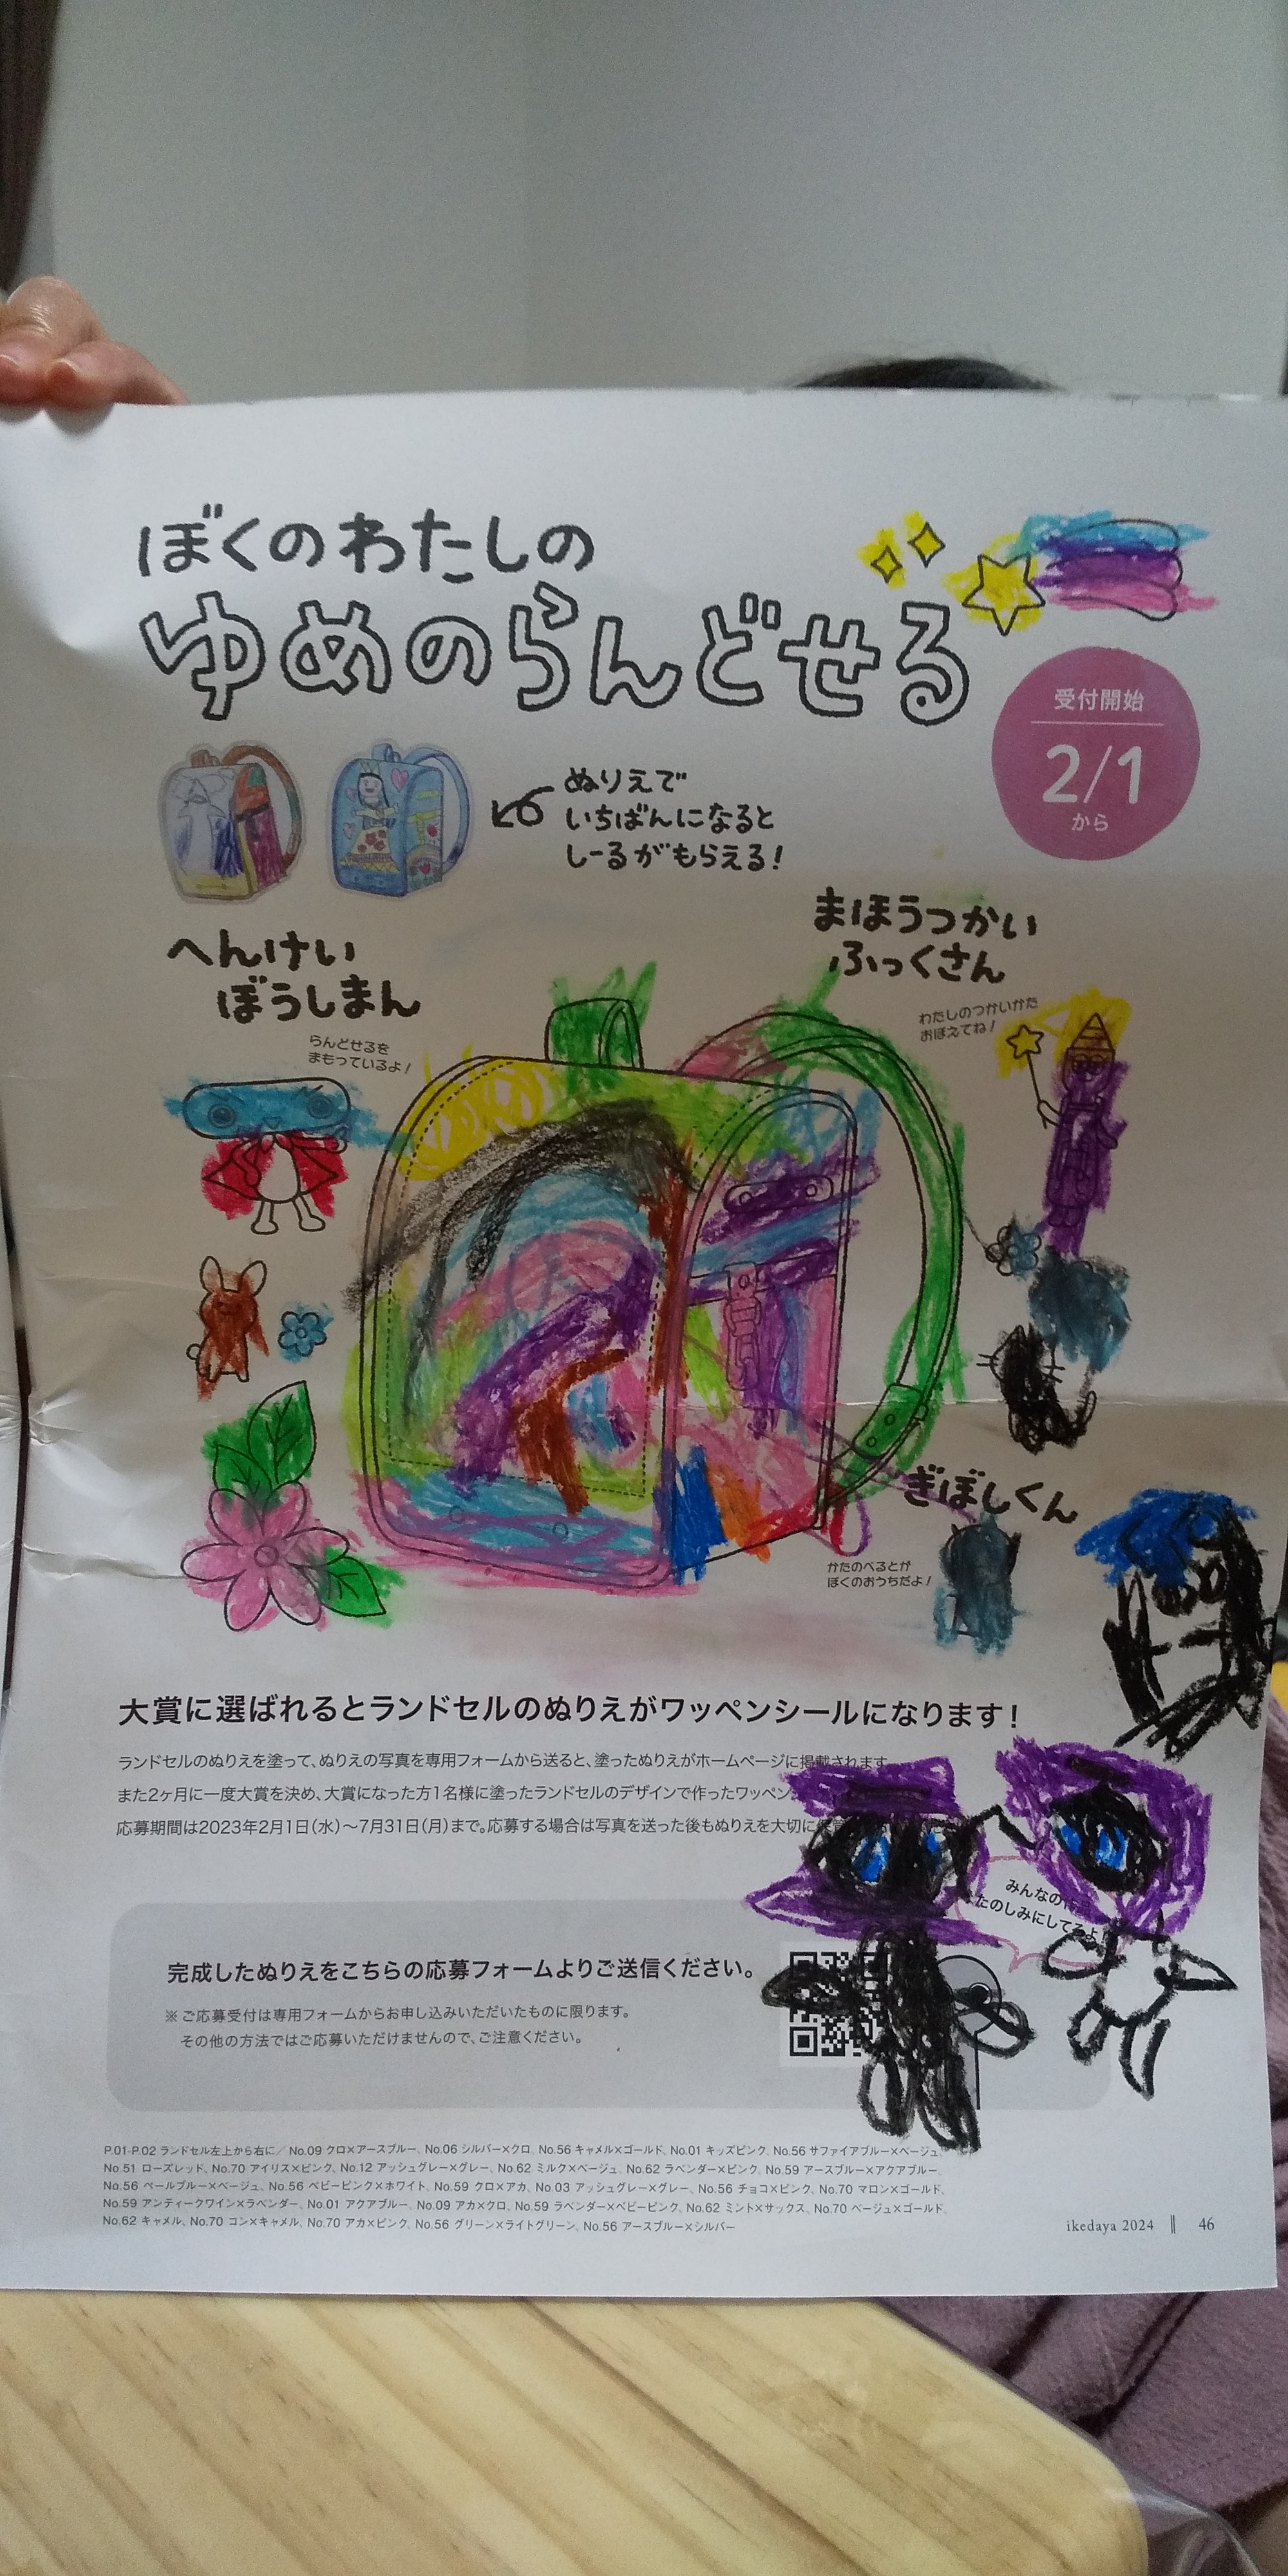 ぼくのわたしの
ゆめのらんどせる
受付開始
2/1
から
ぬりえで
いちばんになると
しーるがもらえる!
まほうつかい
ふっくさん
わたしのつかいかた
おぼえてね!
へんけい
ぼうしまん
らんどせるを
まもっているよ!
ぎぼしくん
かたのべるとが
ぼくのおうちだよ!
大賞に選ばれるとランドセルのぬりえがワッペンシールになります!
ランドセルのぬりえを塗って、ぬりえの写真を専用フォームから送ると、塗ったぬりえがホームページに掲載されます
また2ヶ月に一度大賞を決め、大賞になった方1名様に塗ったランドセルのデザインで作ったワッペン
応募期間は2023年2月1日(水)〜7月31日(月)まで。応募する場合は写真を送った後もぬりえを大切に
みんなの
たのしみにしてるよ
完成したぬりえをこちらの応募フォームよりご送信ください。
※ご応募受付は専用フォームからお申し込みいただいたものに限ります。
その他の方法ではご応募いただけませんので、ご注意ください。
P.01-P.02 ランドセル左上から右に/No.09 クロ×アースブルー、No.06 シルバー×クロ、No.56 キャメル×ゴールド、No.01 キッズピンク、No.56 サファイアブルー×ベージュ、
No.51 ローズレッド、No.70 アイリス×ピンク、No.12 アッシュグレー×グレー、No.62 ミルク×ベージュ、No.62 ラベンダー×ピンク、No.59 アースブルー×アクアブルー、
No.56 ペールブルー×ベージュ、No.56 ベビーピンク×ホワイト、No.59 クロ×アカ、No.03 アッシュグレー×グレー、No.56 チョコ×ピンク、No.70 マロン×ゴールド、
No.59 アンティークワイン×ラベンダー、No.01 アクアブルー、No.09 アカ×クロ、No.59 ラベンダー×ベビーピンク、No.62 ミント×サックス、No.70 ベージュ×ゴールド、
No.62 キャメル、No.70 コン×キャメル、No.70 アカ×ピンク、No.56 グリーン×ライトグリーン、No.56 アースブルー×シルバー
ikedaya 2024 || 46